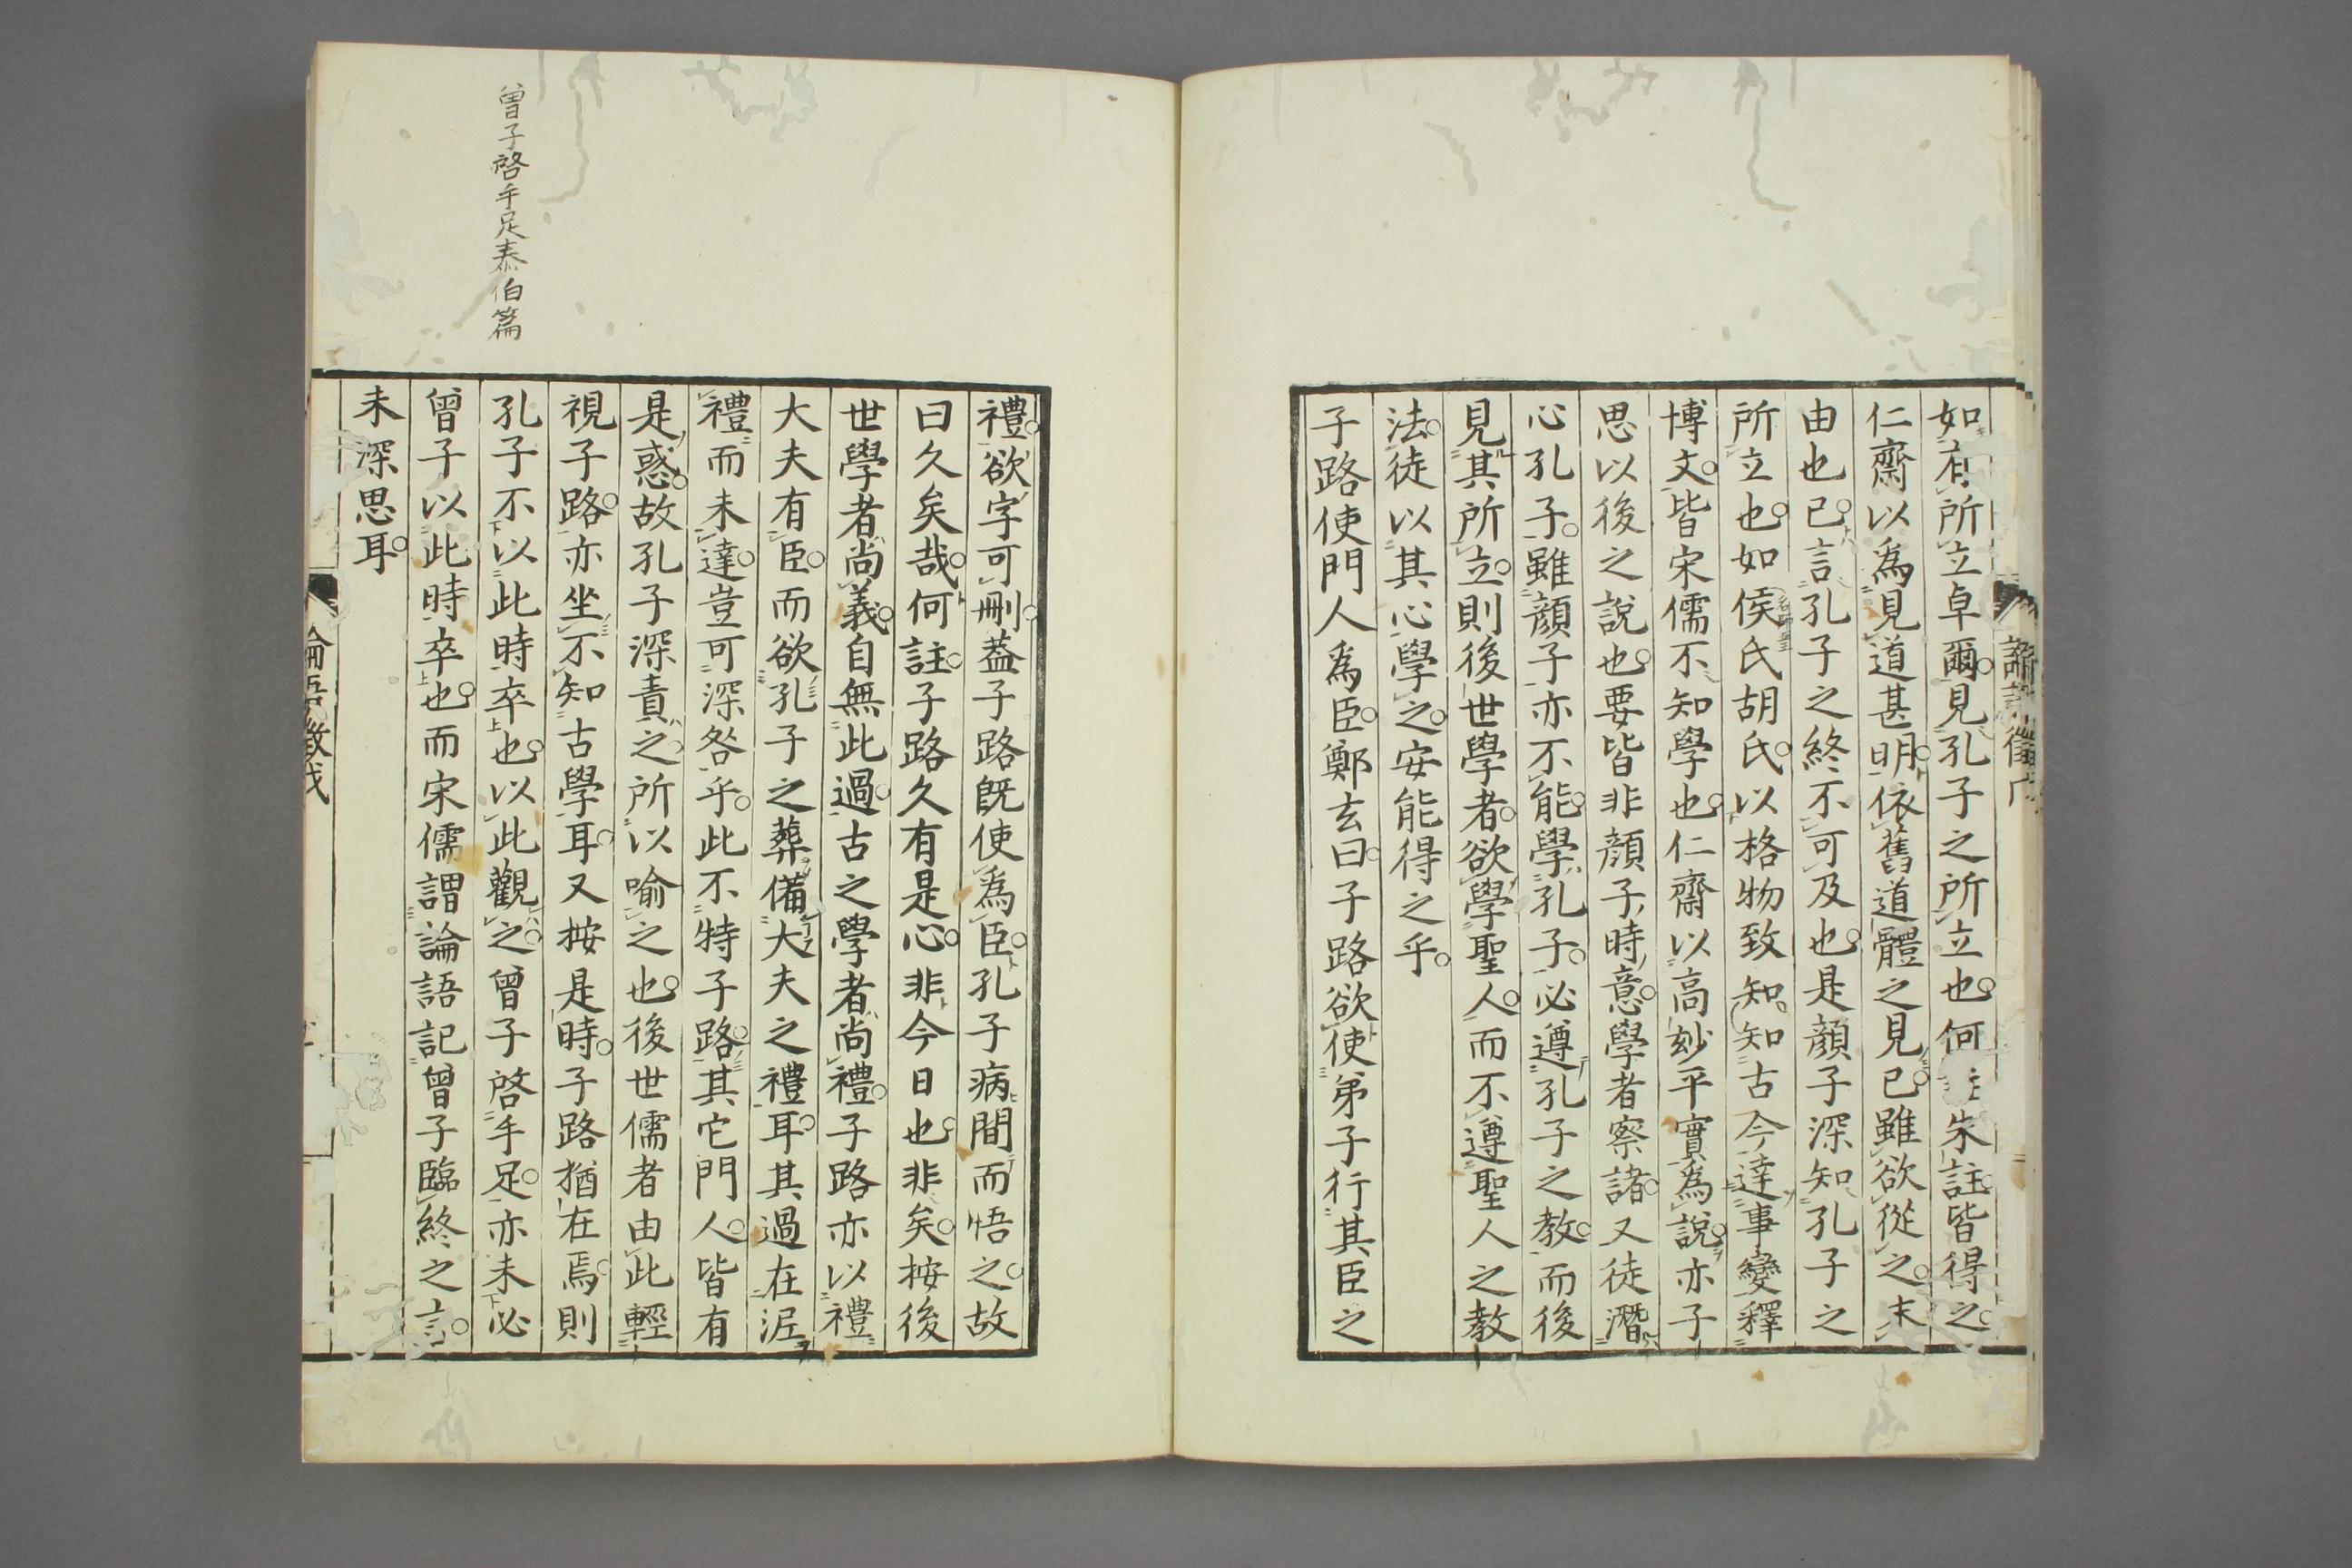 如有所立卓爾見孔子之所立也何註朱註皆得之
仁齋以爲見道甚明依舊道體之見已雖欲從之末
由也已言孔子之終不可及也是顏子深知孔子之
所立也如侯氏胡氏以格物致知知古今達事變釋
博文皆宋儒不知學也仁齋以高玅平實爲說亦子
思以後之說也要皆非顏子時意學者察諸又徒潛
心孔子雖顏子亦不能學孔子必遵孔子之教而後
見其所立則後世學者欲學聖人而不遵聖人之教
法徒以其心學之安能得之乎
子路使門人爲臣鄭玄曰子路欲使弟子行其臣之
禮欲字可刪蓋子路既使爲臣孔子病間而悟之故
曰久矣哉何註子路久有是心非今日也非矣按後
世學者尚義自無此過古之學者尚禮子路亦以禮
大夫有臣而欲孔子之葬備大夫之禮耳其過在泥
禮而未達豈可深咎乎此不特子路其它門人皆有
是惑故孔子深責之所以喻之也後世儒者由此輕
視子路亦坐不知古學耳又按是時子路猶在焉則
孔子不以此時卒也以此觀之曾子啓手足亦未必
曾子以此時卒也而宋儒謂論語記曾子臨終之言
未深思耳
曾子啓手足泰伯篇
論語徵戊